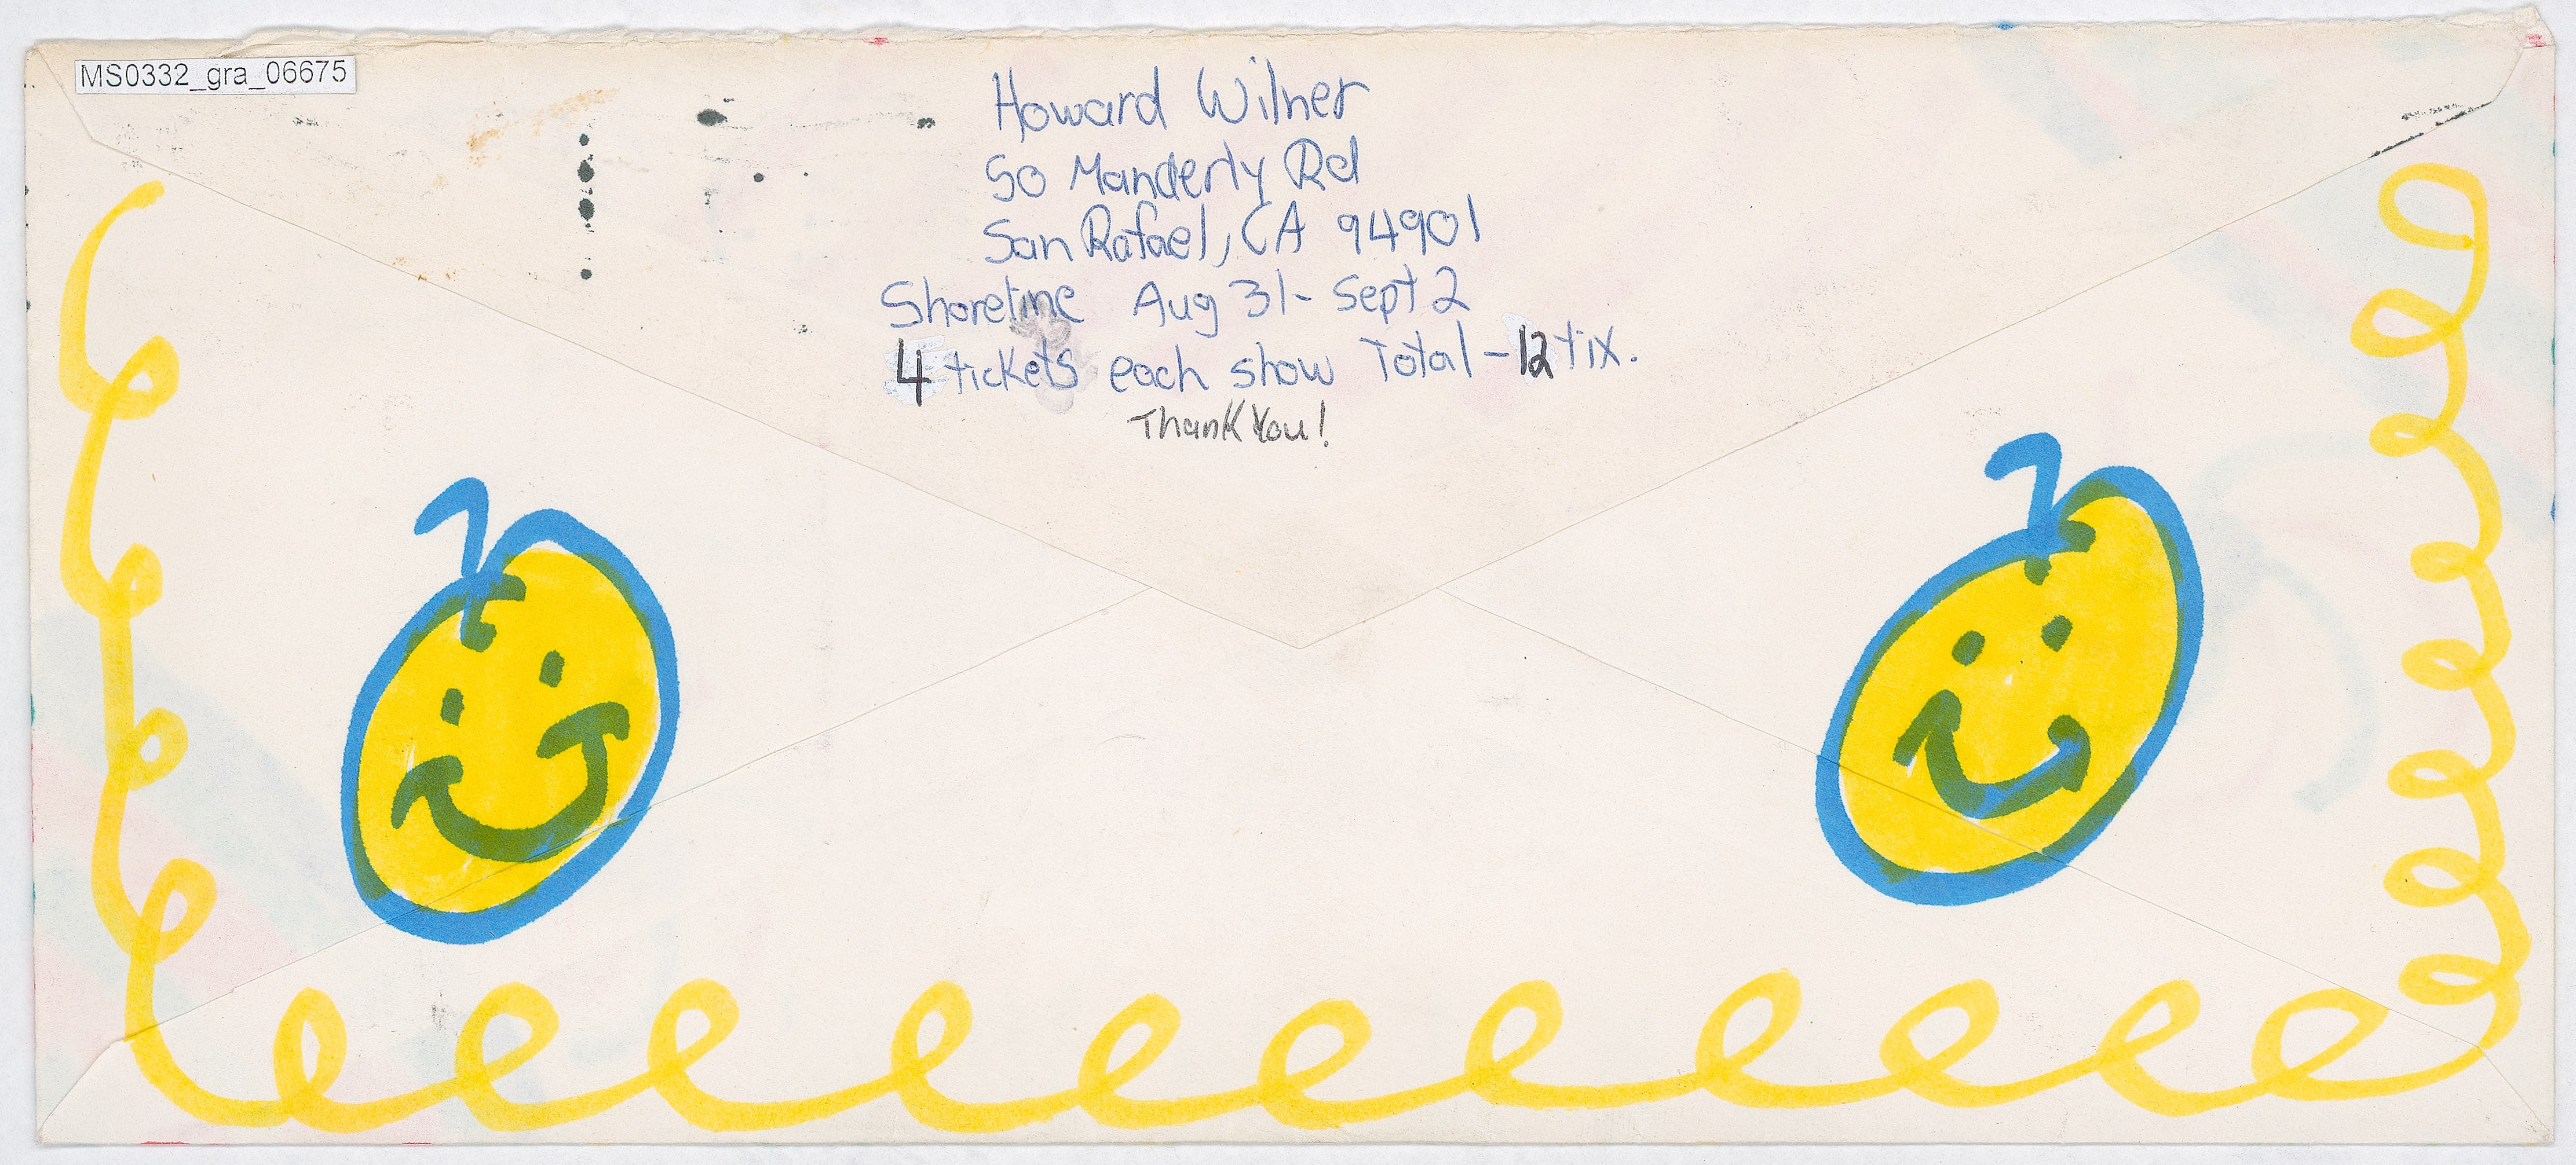 MS0332_gra_06675
Howard Wilner
50 Manderly Rd
San Rafael, CA 94901
Shoreline Aug 31- Sept 2
4 tickets each show Total - 12 tix.
Thank You!